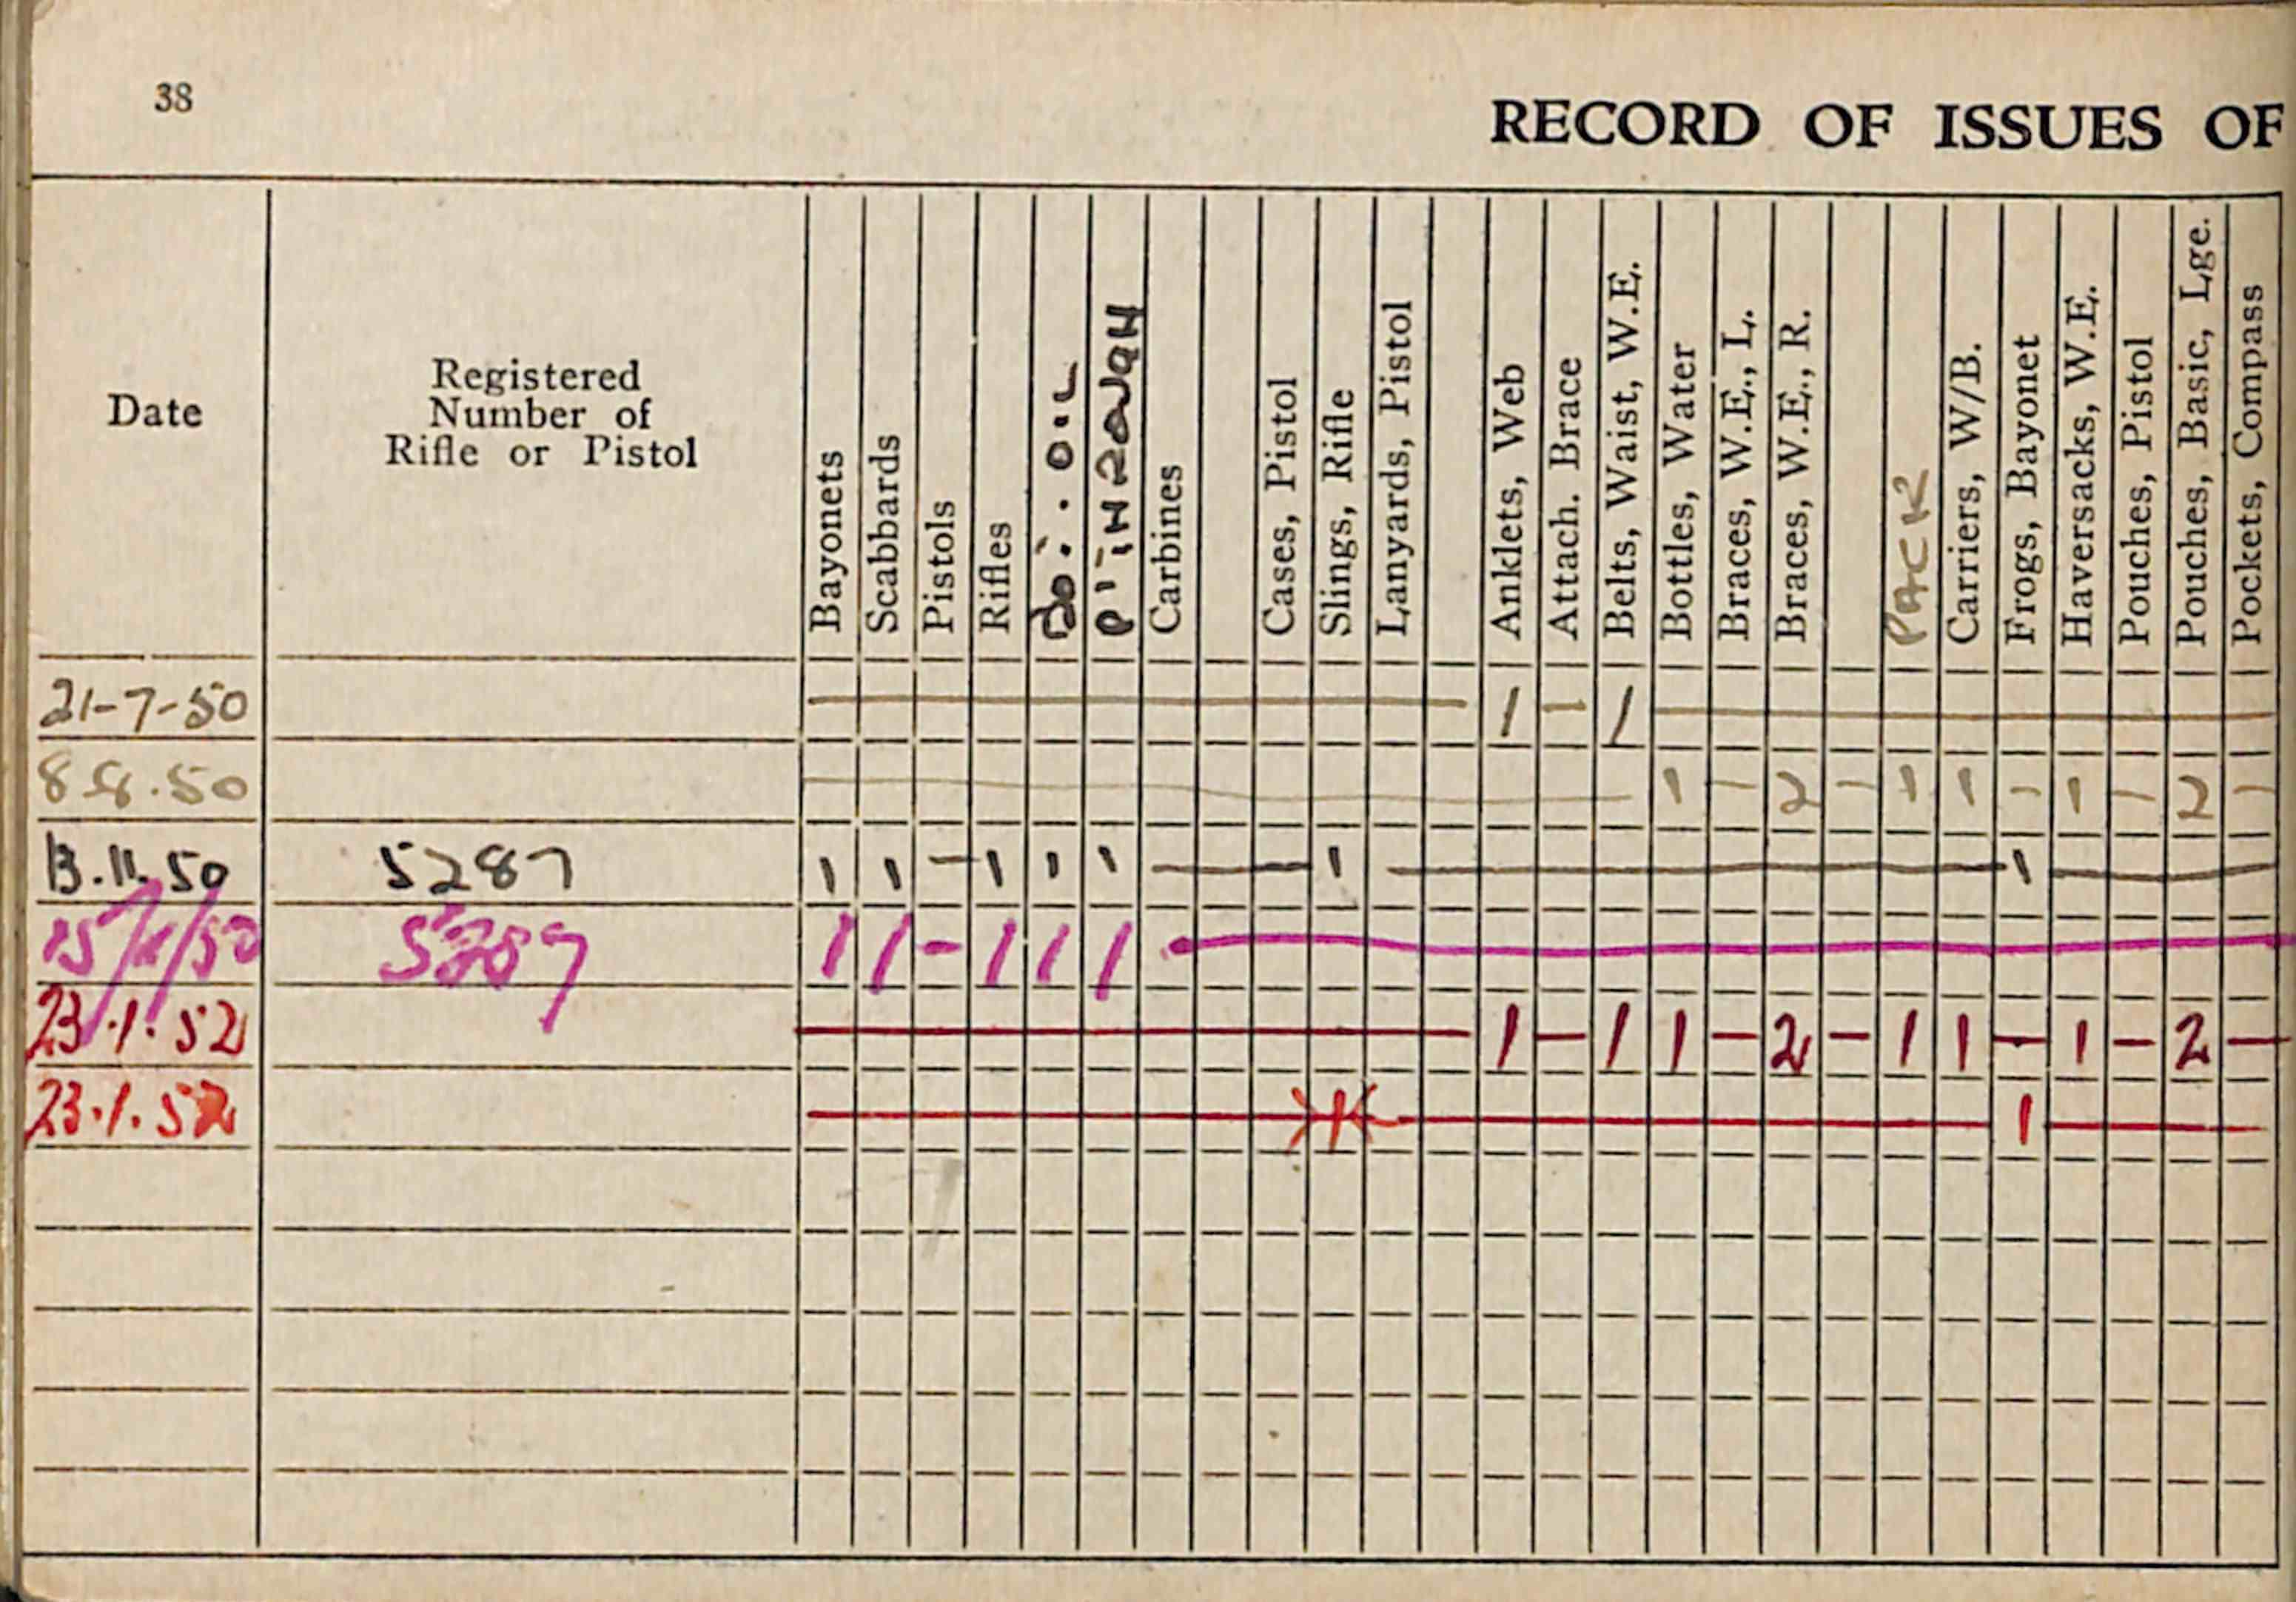 38
RECORD OF ISSUES OF
Date
Registered
Number of
Rifle or Pistol
Bayonets
Scabbards
Pistols
Rifles
Carbines
Cases, Pistol
Slings, Rifle
Lanyards, Pistol
Anklets, Web
Attach. Brace
Belts, Waist, W.E.
Bottles, Water
Braces, W.E., L.
Braces, W.E., R.
PACK
Carriers, W/B.
Frogs, Bayonet
Haversacks, W.E.
Pouches, Pistol
Pouches, Basic, Lge.
Pockets, Compass
21-7-50 — 1 – 1 —
8.8.50 — 1 – 2 – 1 1 – 1 – 2 –
13.11.50 5287 1 1 – 1 1 1 — 1 — 1 —
1 1 – 1 1 1 —
23.1.52 — 1 – 1 1 – 2 – 1 1 – 1 – 2 –
23.1.52 — 1 — 1 —